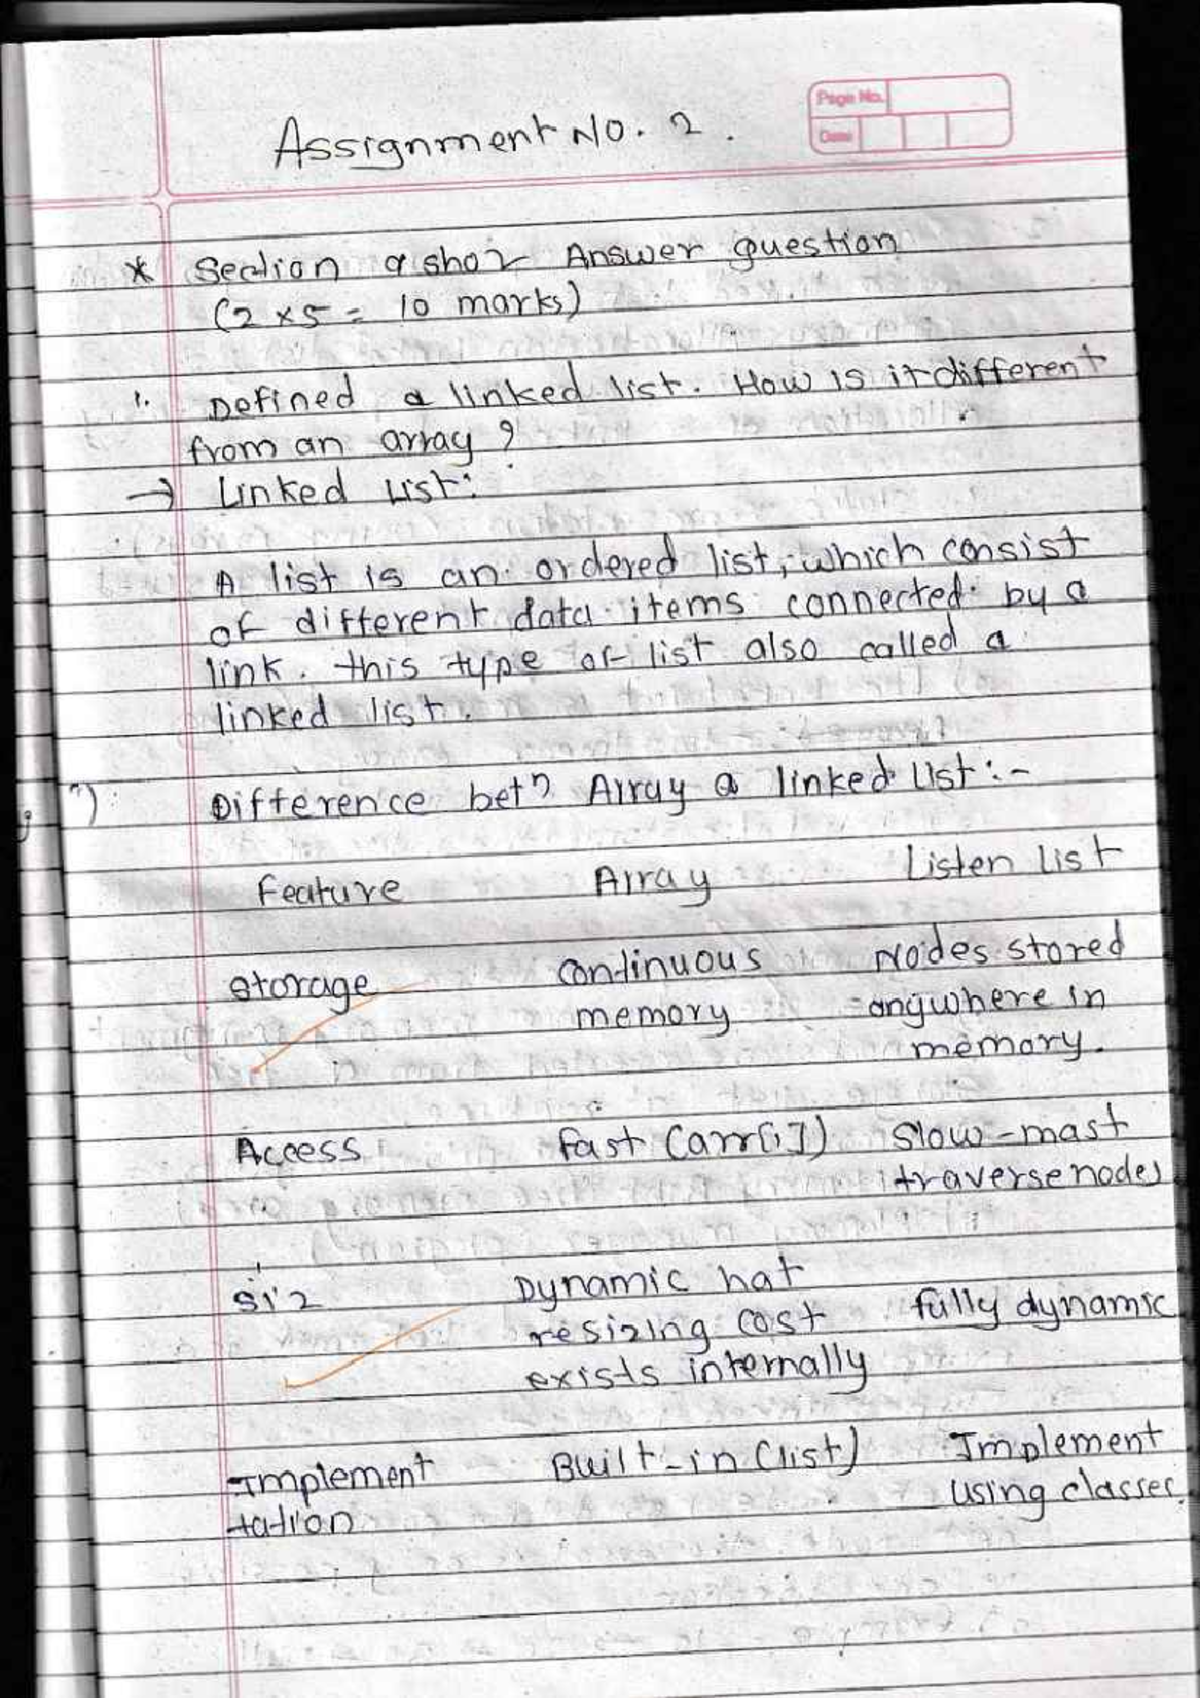 Page No.
Date
Assignment No. 2.
* Section a shor Answer question
(2 x 5 = 10 marks)
1. Defined a linked list. How is it different
from an array ?
→ Linked List:
A list is an ordered list, which consist
of different data items connected by a
link. this type of list also called a
linked list.
Difference betn Array & linked List :-
Feature Array Listen list
Storage Continuous Nodes stored
memory anywhere in
memory.
Access fast (arr[i]) Slow - mast
traverse nodes
Siz Dynamic hat
resizing cost fully dynamic
exists internally
Implement Built-in (list) Implement
tation using classes.